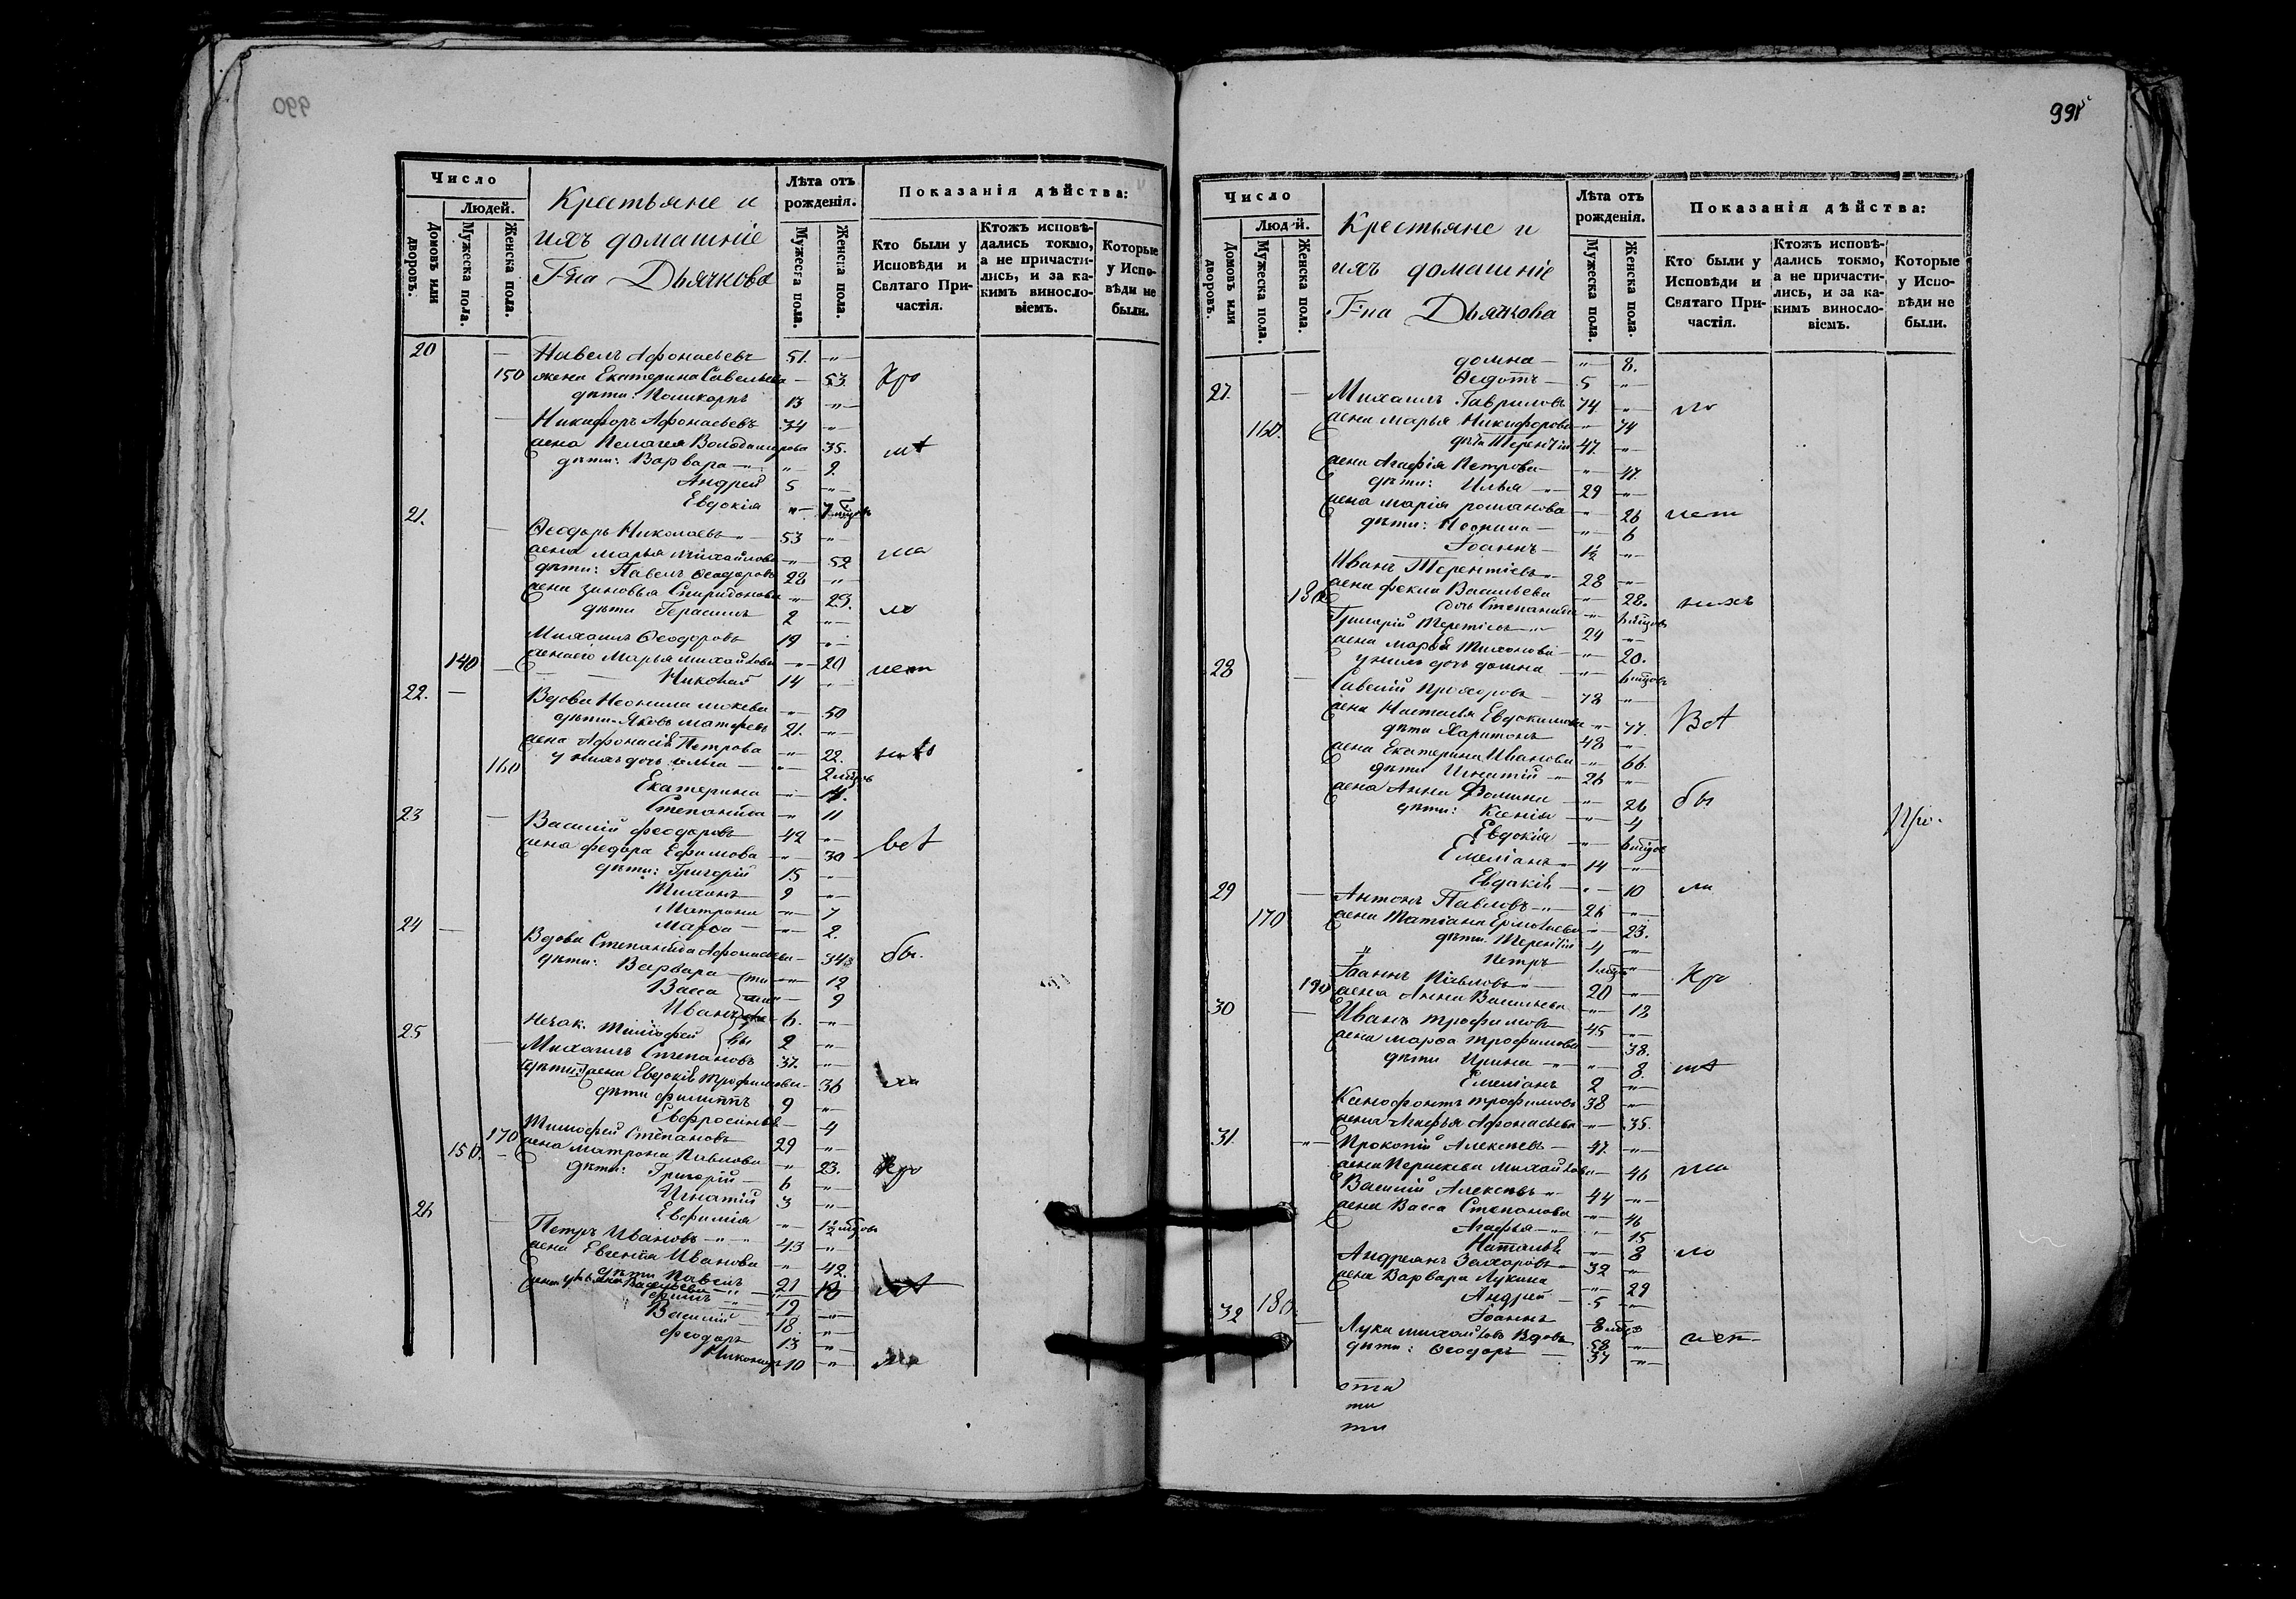 990
Число
Людей.
Домовъ или дворовъ.
Мужеска пола.
Женска пола.
Крестьяне и
ихъ домашніе
Г-на Дьячкова
Лѣта отъ рожденія.
Мужеска пола.
Женска пола.
Показанія дѣйства:
Кто были у Исповѣди и Святаго Причастія.
Ктожъ исповѣдались токмо, а не причастились, и за какимъ винословіемъ.
Которые у Исповѣди не были.
20 — Павелъ Афонасьевъ 51. —"—
150 жена Екатерина Савельева — 53
дѣти: Поликарпъ 13 —"—
— Никифоръ Афонасьевъ 34 —"—
жена Пелагея Володимерова 35.
дѣти: Варвара —"— 9.
Андрей 5 —"—
Евдокія —"— 7 мѣсцовъ
21. — Ѳеодоръ Николаевъ 53 —"—
жена Марья Михайлова —"— 52
дѣти: Павелъ Ѳеодоровъ 28 —"—
жена Зиновья Спиридонова —"— 23.
дѣти Герасимъ 2 —"—
Михаилъ Ѳеодоровъ 19 —"—
140 — жена его Марья Михайлова —"— 20
Николай 14 —"—
22. — Вдова Неонила Мокева —"— 50
дѣти Яковъ Матфеевъ 21. —"—
жена Афонасія Петрова —"— 22.
160 у нихъ дочь Ольга —"— 2 мѣсцовъ
Екатерина —"— 14.
Степанида —"— 11
23 — Василій Феодоровъ 42 —"—
жена Федора Ефимова —"— 30
дѣти: Григорій 15 —"—
Тихонъ 9 —"—
Матрона —"— 7
Марѳа —"— 2.
24 — Вдова Степанида Афонасьева — 34
дѣти: Варвара —"— 12
Васса —"— 9
Иванъ 6. —"—
Тимофей 2 —"—
25 — Михаилъ Степановъ 37. —"—
жена Евдокія Трофимова — 36
дѣти Филиппъ 9 —"—
Евфросинья — 4
170 Тимофей Степановъ 29 —"—
150. — жена Матрона Павлова —"— 23.
дѣти: Григорій 6 —"—
Игнатій 3 —"—
Евфимія —"— 1½ мѣсцовъ
26 — Петръ Ивановъ 43 —"—
жена Евгенія Иванова —"— 42.
дѣти Павелъ 21
18
19 —"—
Василій 18. —"—
Феодоръ 13 —"—
10 —"—
991
Число
Людей.
Домовъ или дворовъ.
Мужеска пола.
Женска пола.
Крестьяне и
ихъ домашніе
Г-на Дьячкова
Лѣта отъ рожденія.
Мужеска пола.
Женска пола.
Показанія дѣйства:
Кто были у Исповѣди и Святаго Причастія.
Ктожъ исповѣдались токмо, а не причастились, и за какимъ винословіемъ.
Которые у Исповѣди не были.
Домна —"— 8.
Ѳедотъ 5 —"—
27. — Михаилъ Гавриловъ 74 —"—
160. жена Марья Никифорова —"— 74
дѣти Терентій 47. —"—
жена Агафія Петрова —"— 47.
дѣти: Илья 29 —"—
жена Марія Романова —"— 26
дѣти: Неонила —"— 6
Іоаннъ 1½ —"—
Иванъ Терентіевъ 28 —"—
180 жена Фекла Васильева —"— 28.
дочь Степанида —"— 6 мѣсцовъ
Григорій Терентіевъ 24 —"—
жена Марѳа Тихонова —"— 20.
у нихъ дочь Домна —"— 6 мѣсцовъ
28 — Савелій Прохоровъ 78 —"—
жена Настасья Евдокимова —"— 77.
дѣти Харитонъ 48 —"—
жена Екатерина Иванова —"— 66.
дѣти Игнатій 26 —"—
жена Анна Фомина —"— 26
дѣти: Ксенія —"— 4
Евдокія —"— 6 мѣсцов
Емеліанъ 14 —"—
Евдокія —"— 10
29 — Антонъ Павловъ 26 —"—
170 жена Татіана Ермолаева —"— 23.
дѣти Терентій 4 —"—
Петръ 1 мѣсц —"—
Іоаннъ Павловъ 20 —"—
190 жена Анна Васильева —"— 18
30 — Иванъ Трофимовъ 45 —"—
жена Марѳа Трофимова — 38.
дѣти Ирина —"— 8.
Емеліанъ 2 —"—
Ксенофонтъ Трофимовъ 38 —"—
жена Агафья Афонасьева —"— 35.
31. —"— Прокопій Алексѣевъ 47. —"—
жена Перискева Михайлова — 46
Василій Алексѣевъ 44 —"—
жена Васса Степанова —"— 46
Агафья —"— 15
Наталья —"— 8
Андреянъ Захаровъ 32 —"—
жена Варвара Лукина —"— 29
Андрей 5 —"—
180. Іоаннъ 8 мѣсц
32 — Лука Михайловъ Вдовъ 58 —"—
дѣти: Ѳеодоръ 37 —"—